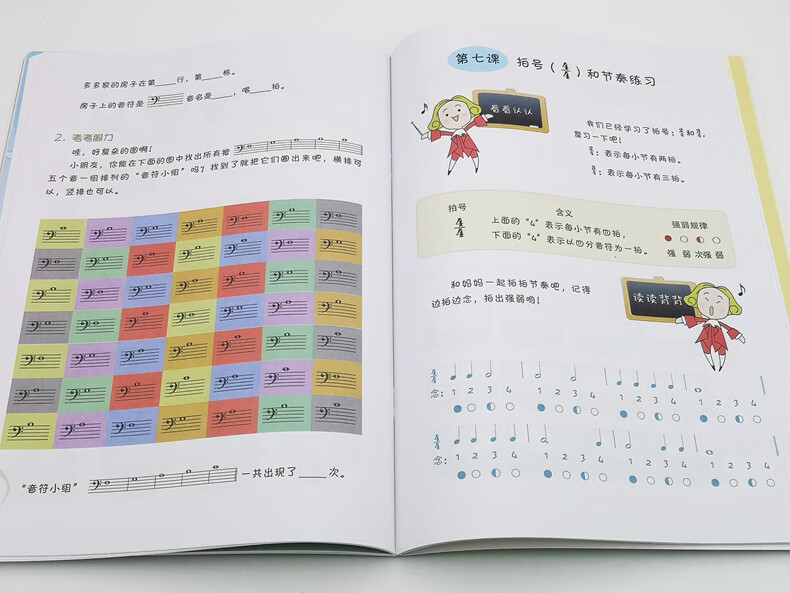 多多家的房子在第____行，第____栋。
房子上的音符是 音名是____，唱____拍。
2. 考考眼力
哇，好复杂的图啊！
小朋友，你能在下面的图中找出所有按
五个音一组排列的“音符小组”吗？找到了就把它们圈出来吧，横排可
以，竖排也可以。
“音符小组” 一共出现了____次。
第七课 拍号（4/4）和节奏练习
看看认认
我们已经学习了拍号：2/4和3/4，
复习一下吧！
2/4：表示每小节有两拍。
3/4：表示每小节有三拍。
拍号 含义 强弱规律
4/4 上面的“4”表示每小节有四拍，
下面的“4”表示以四分音符为一拍。
强 弱 次强 弱
和妈妈一起拍拍节奏吧，记得
边拍边念，拍出强弱哟！
读读背背
4/4
念：1 2 3 4 1 2 3 4 1 2 3 4 1 2 3 4
4/4
念：1 2 3 4 1 2 3 4 1 2 3 4 1 2 3 4